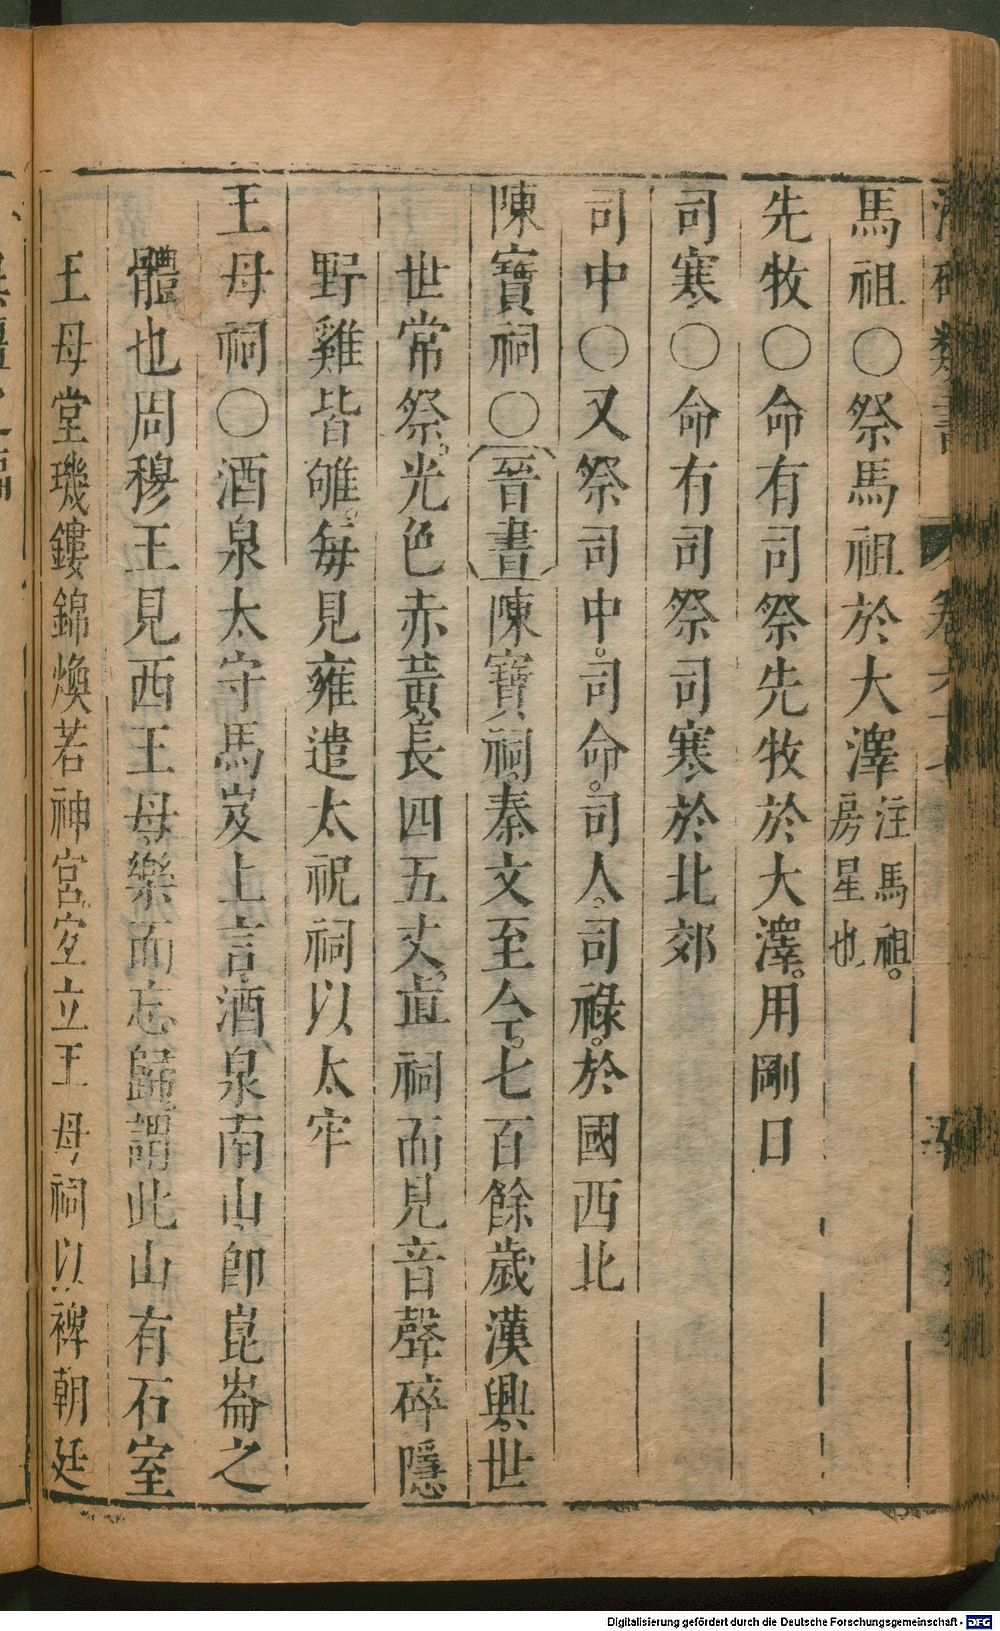 馬祖〇祭馬祖於大澤注馬祖。房星也
先牧〇命有司祭先牧於大澤。用剛日
司寒〇命有司祭司寒於北郊
司中〇又祭司中。司命。司人。司祿。於國西北
陳寶祠〇晉書陳寶祠。秦文至今。七百餘歲漢興。世
世常祭。光色赤黃長四五丈。直祠而見音聲砰隱
野雞皆雊。每見雍遣太祝祠以太牢
王母祠〇酒泉太守馬岌上言酒泉南山。卽崑崙之
體也周穆王見西王母。樂而忘歸。謂此山有石室
王母堂璣鏤錦煥若神宮。宜立王母祠以裨朝廷
類書 卷六十七
Digitalisierung gefördert durch die Deutsche Forschungsgemeinschaft - DFG